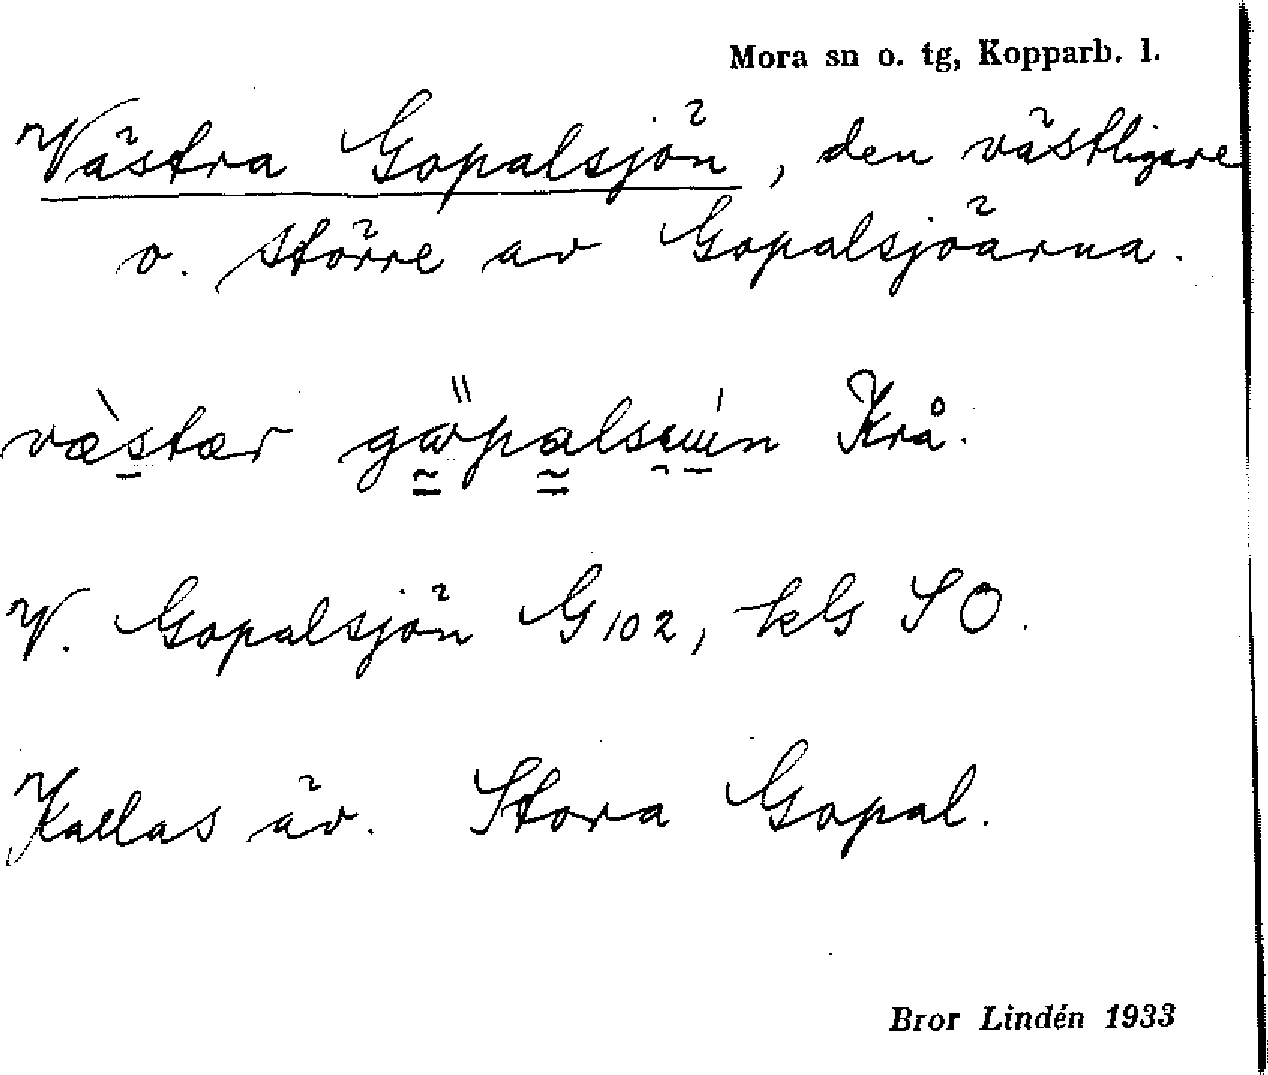 Mora sn o. tg, Kopparb. l.
Västra Gopalsjön, den västligare
o. större av Gopalsjöarna.
væ̀stær Krå.
V. Gopalsjön G102, kG SO.
Kallas äv. Stora Gopal.
Bror Lindén 1933